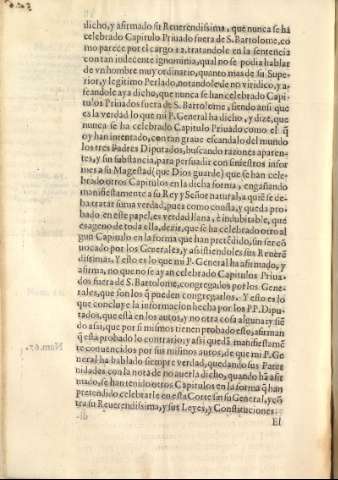 dicho, y afirmado su Reuerendissima, que nunca se hā
celebrado Capitulo Priuado fuera de S. Bartolome, co
mo parece por el cargo 12. tratandole en la sentencia
con tan indecente ignominia, qual no se podia hablar
de vn hombre muy ordinario, quanto mas de su Supe-
rior, y legitimo Perlado, notandole de no viridico, y a-
feandole aya dicho, que nunca se han celebrado Capi-
tulos Priuados fuera de S. Bartolome, siendo ansi que
es la verdad lo que mi P. General ha dicho, y dize, que
nunca se ha celebrado Capitulo Priuado como el q̄
oy han intentado, con tan graue escandalo del mundo
los tres Padres Diputados, buscando razones aparen-
tes, y sin substancia, para persuadir con siniestros infor
mes a su Magestad (que Dios guarde) que se han cele-
brado otros Capitulos en la dicha forma, engañando
manifiestamente a su Rey y Señor natural, a quiē se de-
ba tratar suma verdad, pues como consta, y queda pro-
bado en este papel, es verdad llana, è indubitable, que
es ageno de toda ella, dezir, que se ha celebrado otro al
gun Capitulo en la forma que han pretēdido, sin ser cō
uocado por los Generales, y assistiendoles sus Reuerē
dissimas. Y esto es lo que mi P. General ha afirmado, y
afirma, no que no se ayan celebrado Capitulos Priua-
dos fuera de S. Bartolome, congregados por los Gene-
rales, que son los q̄ pueden congregarlos. Y esto es lo
que concluye la informacion hecha por los PP. Dipu-
tados, que està en los autos, y no otra cosa alguna: y siē
do assi, que por si mismos tienen probado esto, afirman
q̄ esta probado lo contrario; y assi quedā manifiestamē
te conuencidos por sus mismos autos, de que mi P. Ge
neral ha hablado siempre verdad, quedando sus Pater
nidades con la nota de no auerla dicho, quando hā afir
mado, se han tenido otros Capitulos en la forma q̄ han
pretendido celebrarle en esta Corte sin su General, y cō
tra su Reuerendissima, y sus Leyes, y Constituciones.
El